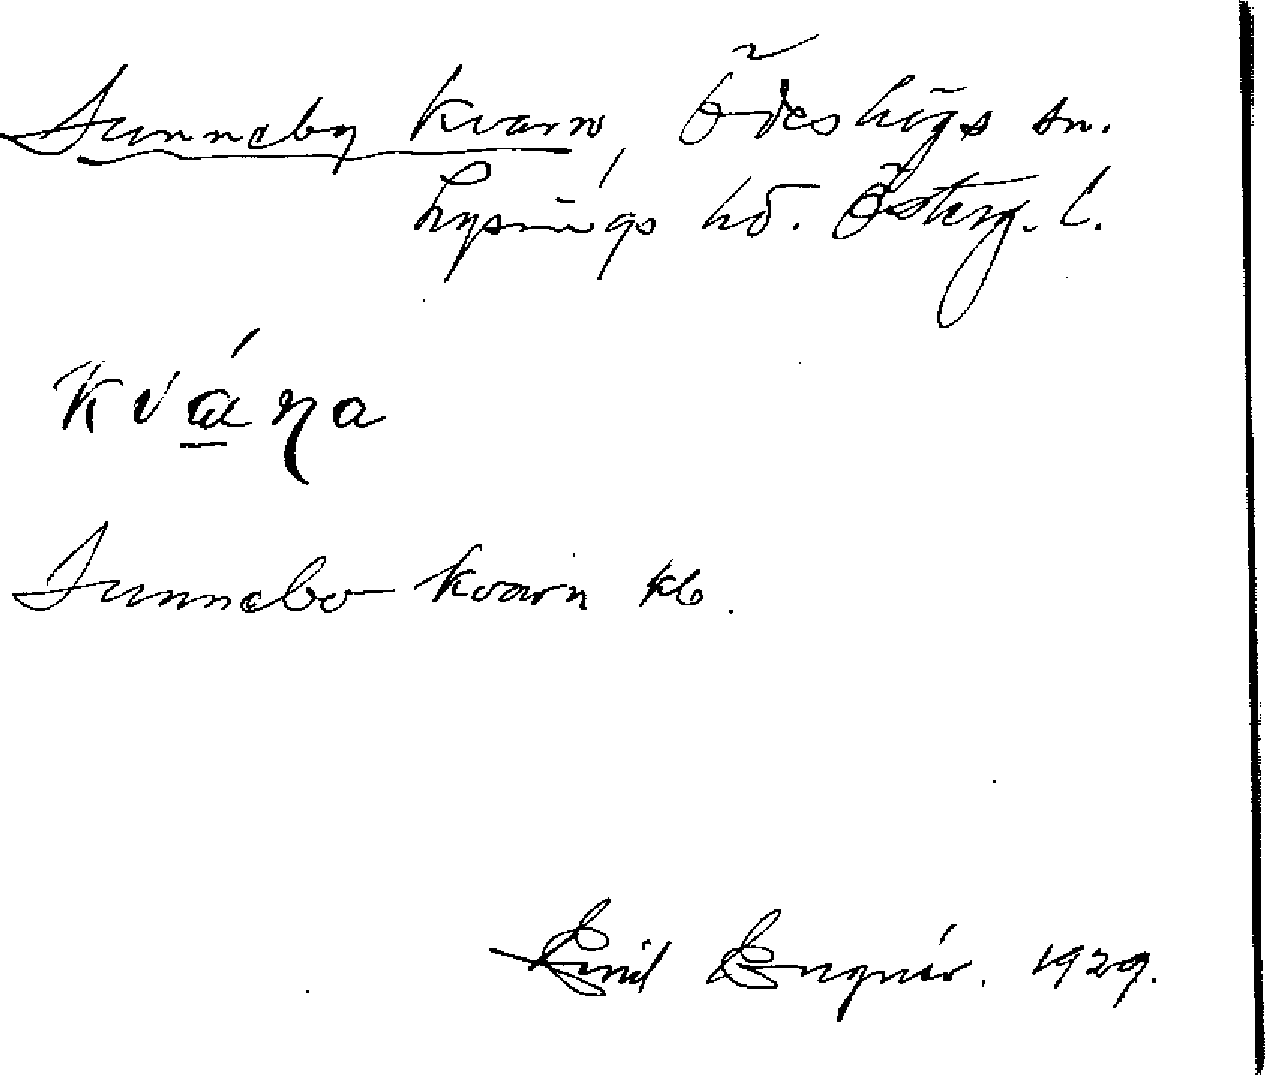 Sunneby kvarn, Ödeshögs sn.
Lysings hd. Österg. l.
kvá̱ɳa
Sunnebo kvarn kb.
Emil Engnér. 1929.